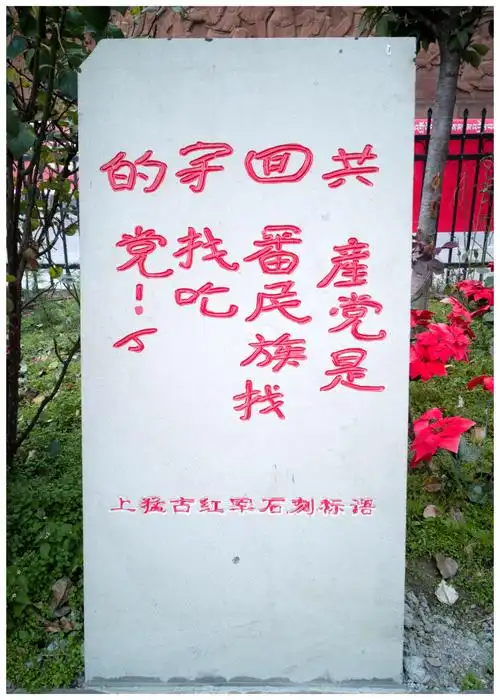 共產党是
囬番民族找
穿找吃
的党！
上猛古红军石刻标语